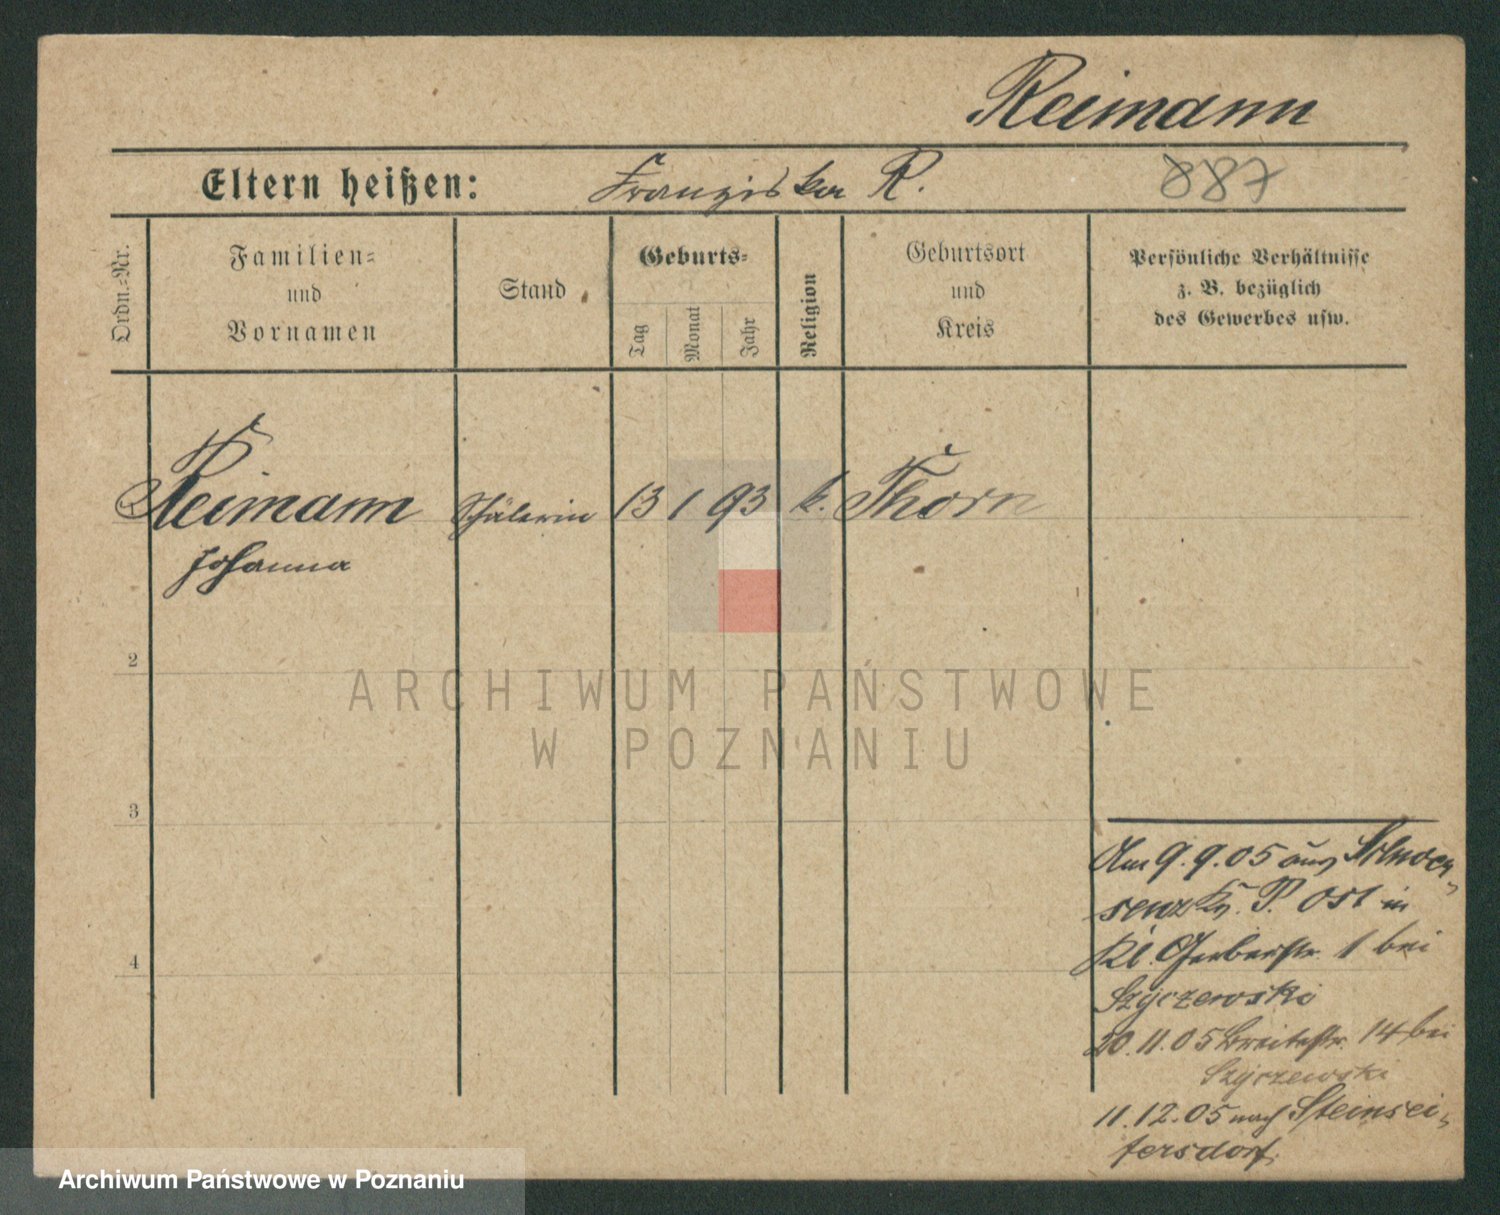 Reimann
Eltern heißen: Franziska R. 887
Ordn.-Nr.
Familien-
und
Vornamen
Stand
Geburts-
Tag
Monat
Jahr
Religion
Geburtsort
und
Kreis
Persönliche Verhältnisse
z. B. bezüglich
des Gewerbes usw.
Reimann Schülerin 13 1 93 k. Thorn
Johanna
2
3
4
Am 9.9.05 aus
Kr. P. Ost in
Kl. Gerberstr. 1 bei
Szyczewski
20.11.05 Breitestr. 14 bei
Szyczewski
11.12.05 nach Steinsei-
fersdorf.
ARCHIWUM PAŃSTWOWE
W POZNANIU
Archiwum Państwowe w Poznaniu